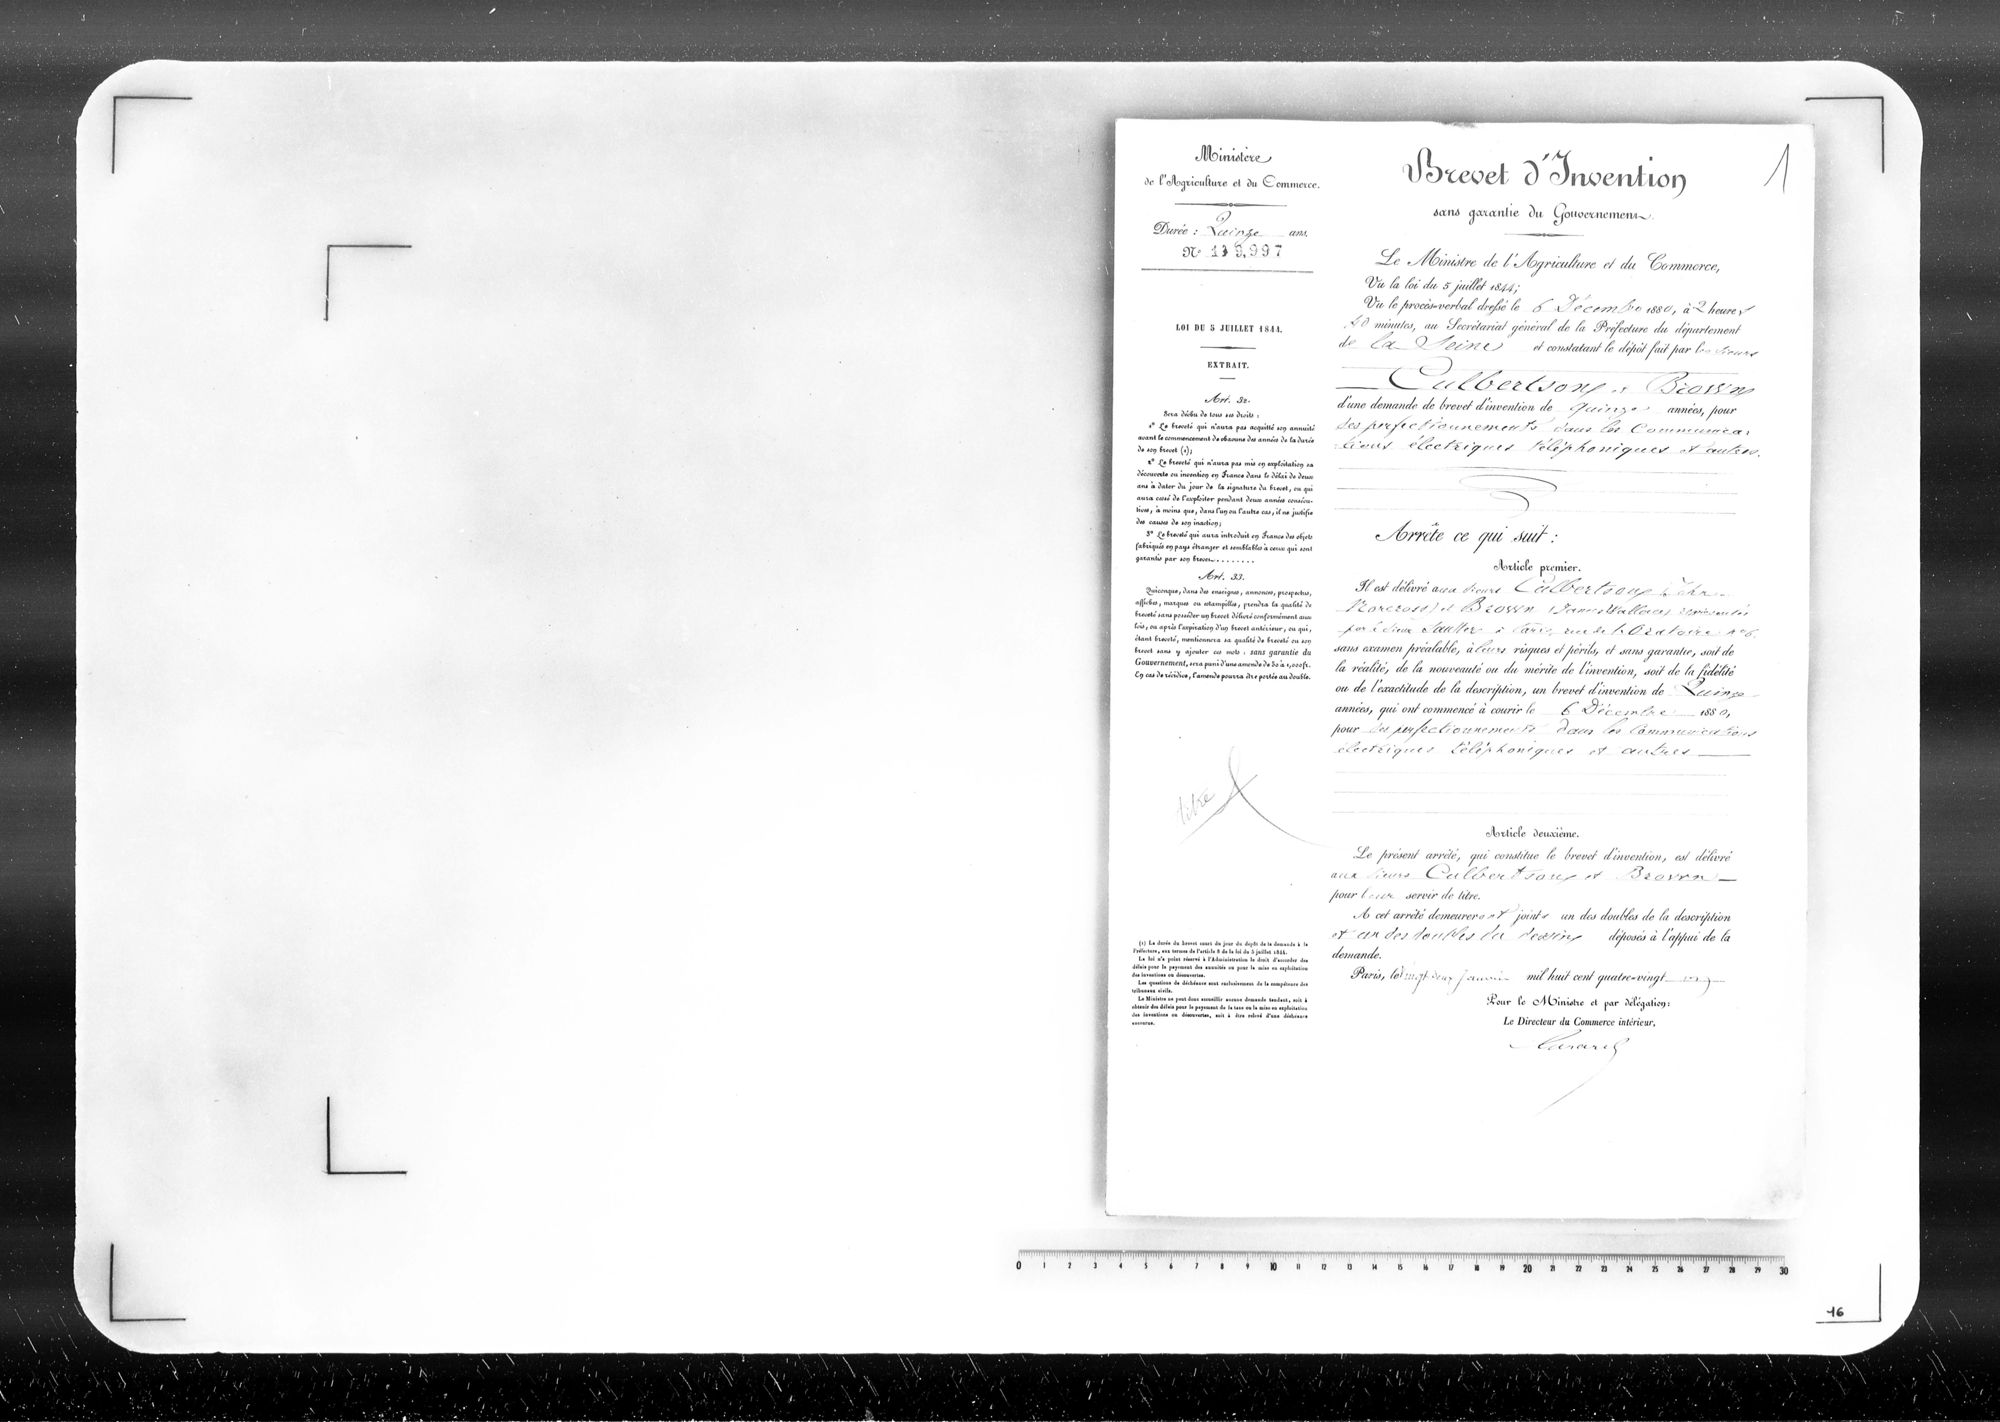 Ministère
de l'Agriculture et du Commerce.
Durée : Quinze ans.
N° 139,997
LOI DU 5 JUILLET 1844.
EXTRAIT.
Art. 32.
Sera déchu de tous ses droits :
1° Le breveté qui n'aura pas acquitté son annuité
avant le commencement de chacune des années de la durée
de son brevet (1);
2° Le breveté qui n'aura pas mis en exploitation sa
découverte ou invention en France dans le délai de deux
ans à dater du jour de la signature du brevet, ou qui
aura cessé de l'exploiter pendant deux années consécu-
tives, à moins que, dans l'un ou l'autre cas, il ne justifie
des causes de son inaction;
3° Le breveté qui aura introduit en France des objets
fabriqués en pays étranger et semblables à ceux qui sont
garantis par son brevet........
Art. 33.
Quiconque, dans des enseignes, annonces, prospectus,
affiches, marques ou estampilles, prendra la qualité de
breveté sans posséder un brevet délivré conformément aux
lois, ou après l'expiration d'un brevet antérieur, ou qui,
étant breveté, mentionnera sa qualité de breveté ou son
brevet sans y ajouter ces mots : sans garantie du
Gouvernement, sera puni d'une amende de 50 à 1,000 fr.
En cas de récidive, l'amende pourra être portée au double.
titre
(1) La durée du brevet court du jour du dépôt de la demande à la
Préfecture, aux termes de l'article 8 de la loi du 5 juillet 1844.
La loi n'a point réservé à l'Administration le droit d'accorder des
délais pour le payement des annuités ou pour la mise en exploitation
des inventions ou découvertes.
Les questions de déchéance sont exclusivement de la compétence des
tribunaux civils.
Le Ministre ne peut donc accueillir aucune demande tendant, soit à
obtenir des délais pour le payement de la taxe ou la mise en exploitation
des inventions ou découvertes, soit à être relevé d'une déchéance
encourue.
1
Brevet d'Invention
sans garantie du Gouvernement.
Le Ministre de l'Agriculture et du Commerce,
Vu la loi du 5 juillet 1844;
Vu le procès-verbal dressé le 6 Décembre 1880, à 2 heures
40 minutes, au Secrétariat général de la Préfecture du département
de la Seine et constatant le dépôt fait par les sieurs
Culbertson et Brown
d'une demande de brevet d'invention de quinze années, pour
des perfectionnements dans les Communica-
tions électriques téléphoniques et autres.
Arrête ce qui suit :
Article premier.
Il est délivré aux sieurs Culbertson (John
Norcross) et Brown (James Wallace) représentés
par le sieur Sautter à Paris, rue de l'Oratoire n° 6,
sans examen préalable, à leurs risques et périls, et sans garantie, soit de
la réalité, de la nouveauté ou du mérite de l'invention, soit de la fidélité
ou de l'exactitude de la description, un brevet d'invention de Quinze
années, qui ont commencé à courir le 6 Décembre 1880,
pour des perfectionnements dans les Communications
électriques téléphoniques et autres
Article deuxième.
Le présent arrêté, qui constitue le brevet d'invention, est délivré
aux sieurs Culbertson et Brown
pour leur servir de titre.
A cet arrêté demeureront joints un des doubles de la description
et un des doubles du dessin déposés à l'appui de la
demande.
Paris, le vingt deux Janvier mil huit cent quatre-vingt un
Pour le Ministre et par délégation:
Le Directeur du Commerce intérieur,
0 1 2 3 4 5 6 7 8 9 10 11 12 13 14 15 16 17 18 19 20 21 22 23 24 25 26 27 28 29 30
16